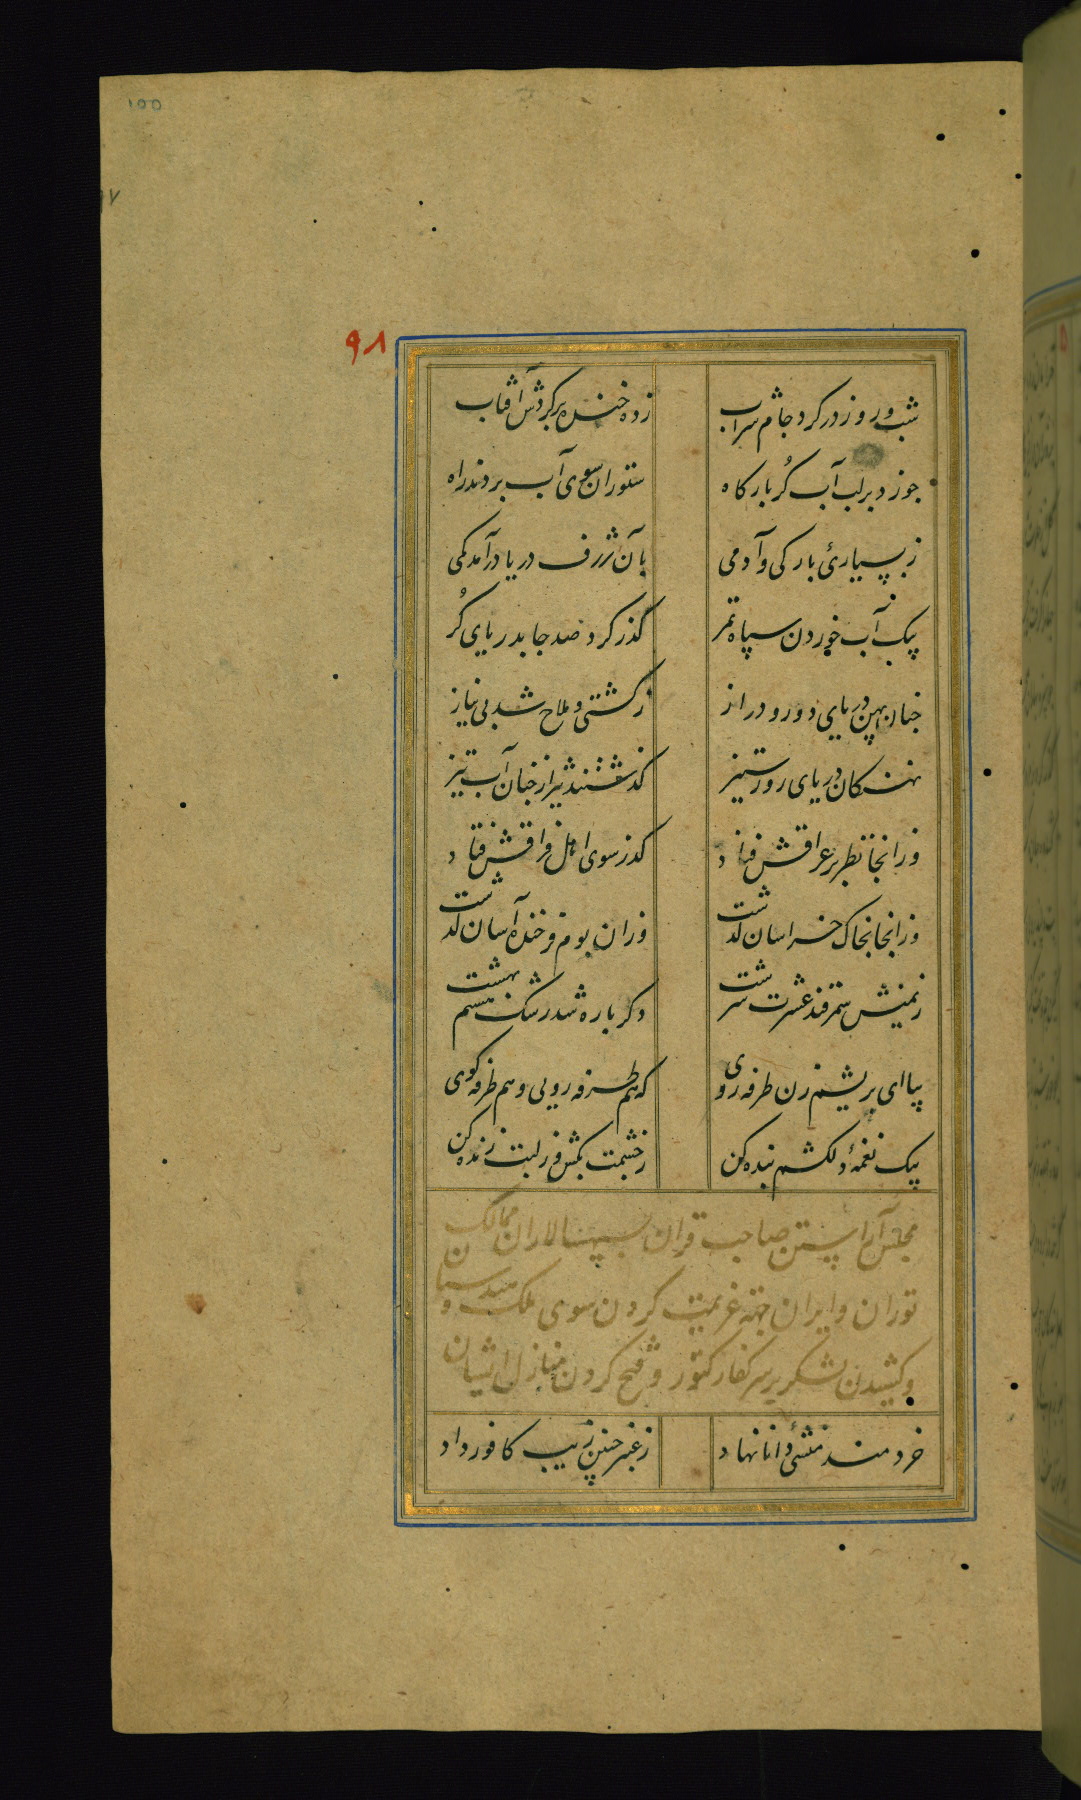 ۱۵۵
۹۸
شب و روز در کرد جام شراب زده خنده بر گردش آفتاب
چو زد بر لب آب کُر بارکاه ستوران سوی آب بردند راه
ز بسیاریٔ بارکی و آدمی بآن ژرف دریا درآمد کمی
بیک آب خوردن سپاه تمر کذر کرد صد جا بدریای کُر
چنان پهن دریای دور و دراز ز کشتی و ملاح شد بی نیاز
نهنکان دریای روز ستیز کذشتند نیز از چنان آب تیز
وزانجا نظر بر عراقش فتاد کذر سوی اهل فراقش فتاد
وزانجا بخاک خراسان کذشت وزان بوم فرخنده آسان کذشت
زمینش سمرقند عشرت سرشت دکر باره شد رشک هشتم بهشت
بیا ای بریشم زن طرفه روی که هم طرفه رویی و هم طرفه کوی
بیک نغمهٔ دلکشم بنده کن ز خشمت بکش وز لبت زنده کن
مجلس آراستن صاحب قران بسپهسالاران ممالک
توران و ایران جهة عزیمت کردن سوی ملک هندوستان
و کشیدن لشکر بر سر کفار کتور و فتح کردن منازل ایشان
خردمند منشیٔ دانا نهاد ز عنبر چنین زیب کافور داد